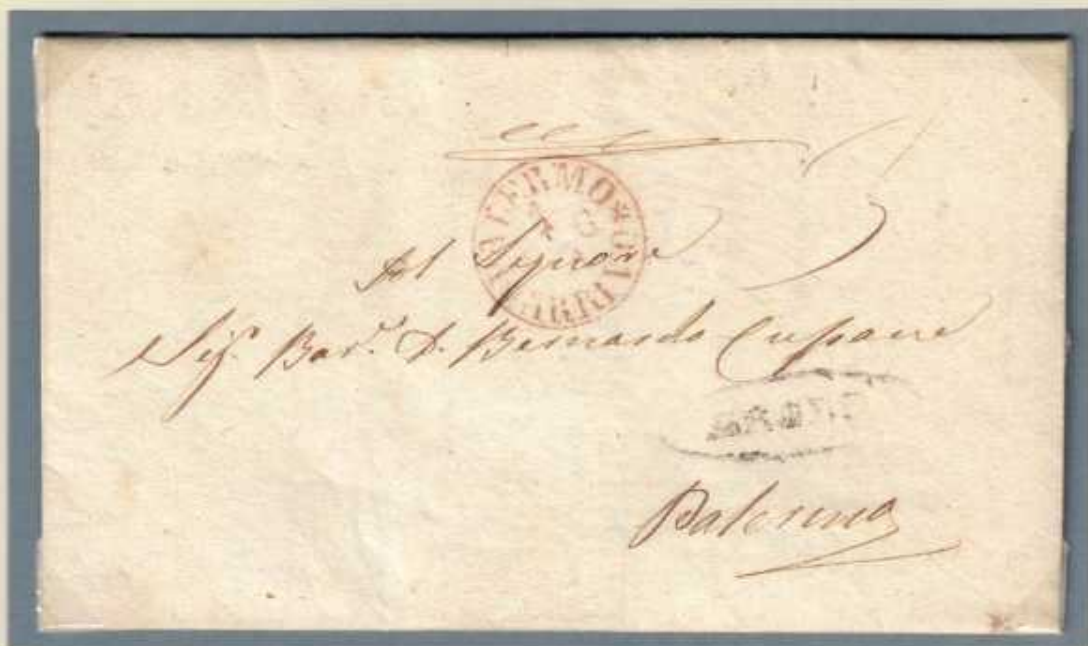 PALERMO * ARRIVO
Al Signore
Sig.r Bar.e D. Bernardo Cupane
Palermo